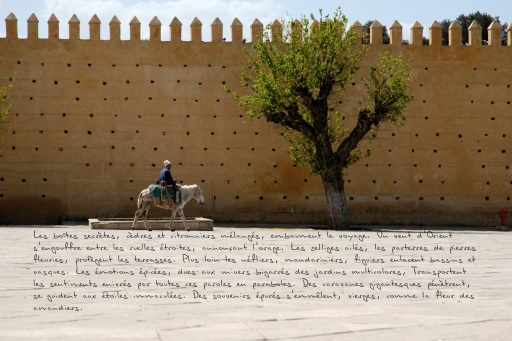 Les boîtes secrètes, cèdres et citronniers mélangés, embaument le voyage. Un vent d'Orient
s'engouffre entre les ruelles étroites, annonçant l'orage. Les zelliges ailés, les parterres de pierres
fleuries, protègent les terrasses. Plus loin tes néfliers, mandariniers, figuiers enlacent bassins et
vasques. Les émotions épicées, dues aux univers bigarrés des jardins multicolores, Transportent
les sentiments enivrés par toutes ces paroles en paraboles. Des caravanes gigantesques pénètrent,
se guident aux étoiles immaculées. Des souvenirs épurés s'emmêlent, vierges, comme la fleur des
amandiers.